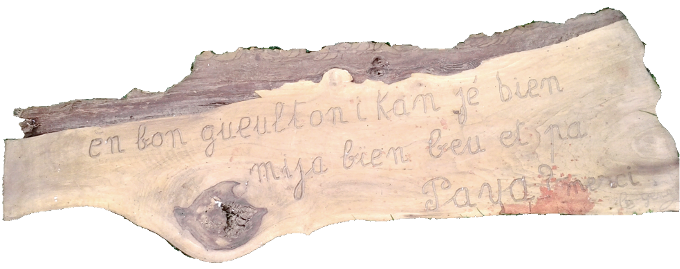 en bon gueultonikan jé bien
mija bien beu et pa
Paya merci